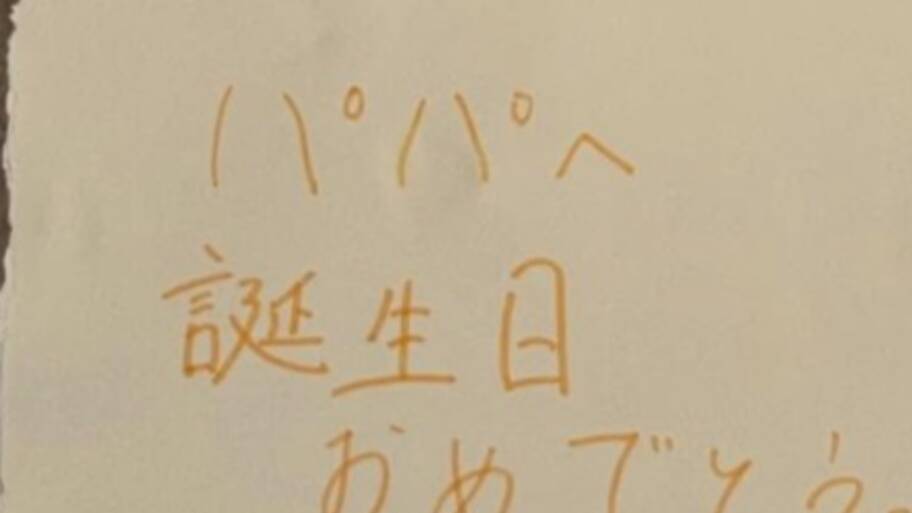 パパへ
誕生日
おめでとう。